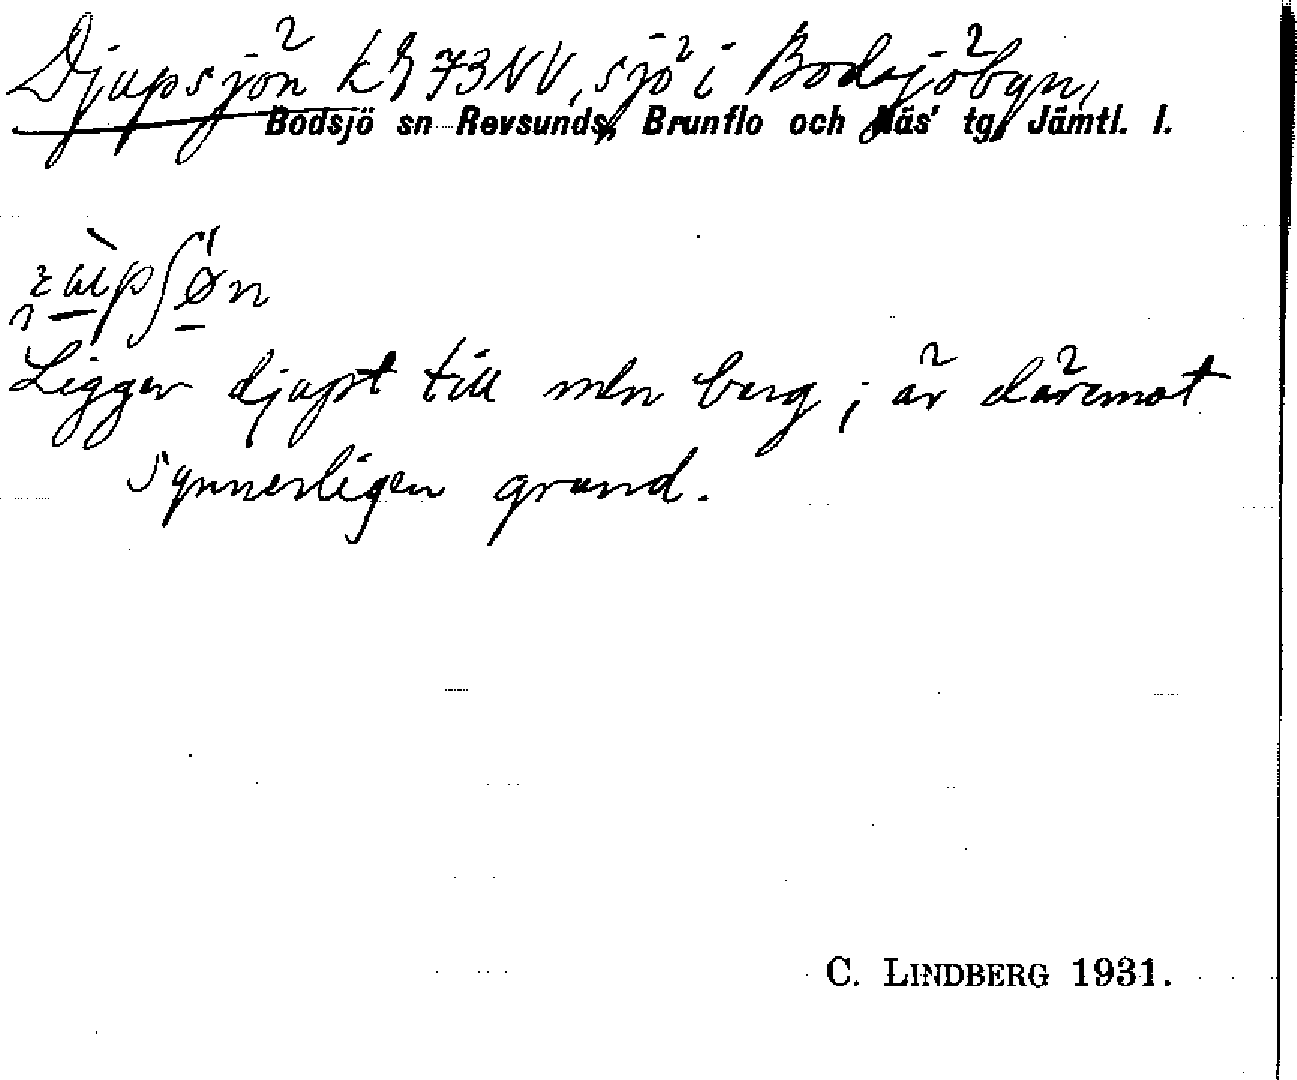 Djupsjön kζ 73NV, sjö i Bodsjöbyn,
Bodsjö sn Revsunds, Brunflo och Näs' tg, Jämtl. l.
Ligger djupt till mln berg; är däremot
synnerligen grund.
C. LINDBERG 1931.